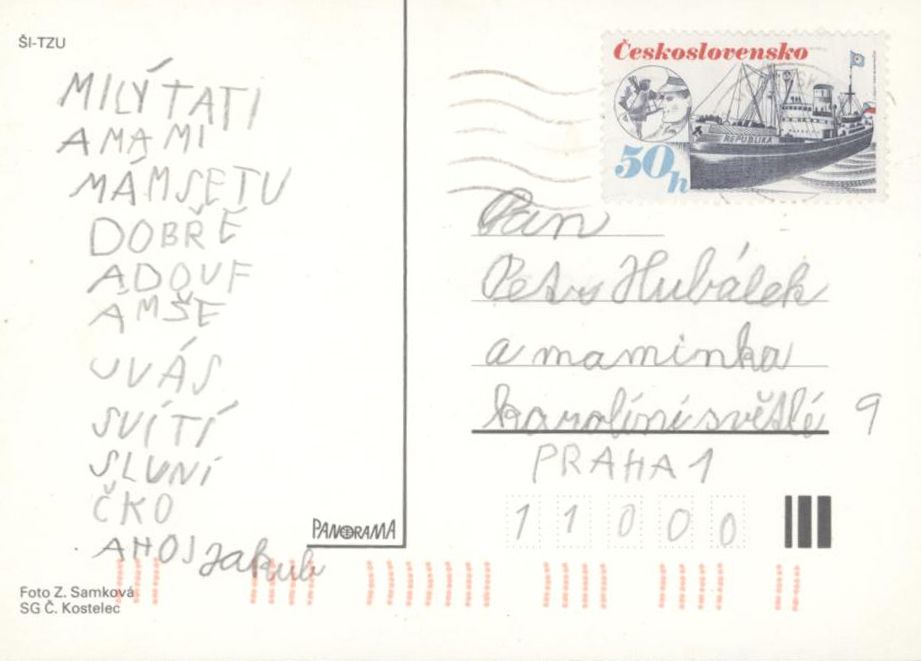 ŠI-TZU
MILÝ TATI
A MÁMI
MÁM SE TU
DOBŘE
A DOUF
AM ŠE
U VÁS
SVÍTÍ
SLUNÍ
ČKO
AHOJ Jakub
PANORAMA
Foto Z. Samková
SG Č. Kostelec
Československo
REPUBLIKA
50h
Pan
Petr Hubálek
a maminka
karolíni světlé 9
PRAHA 1
11000